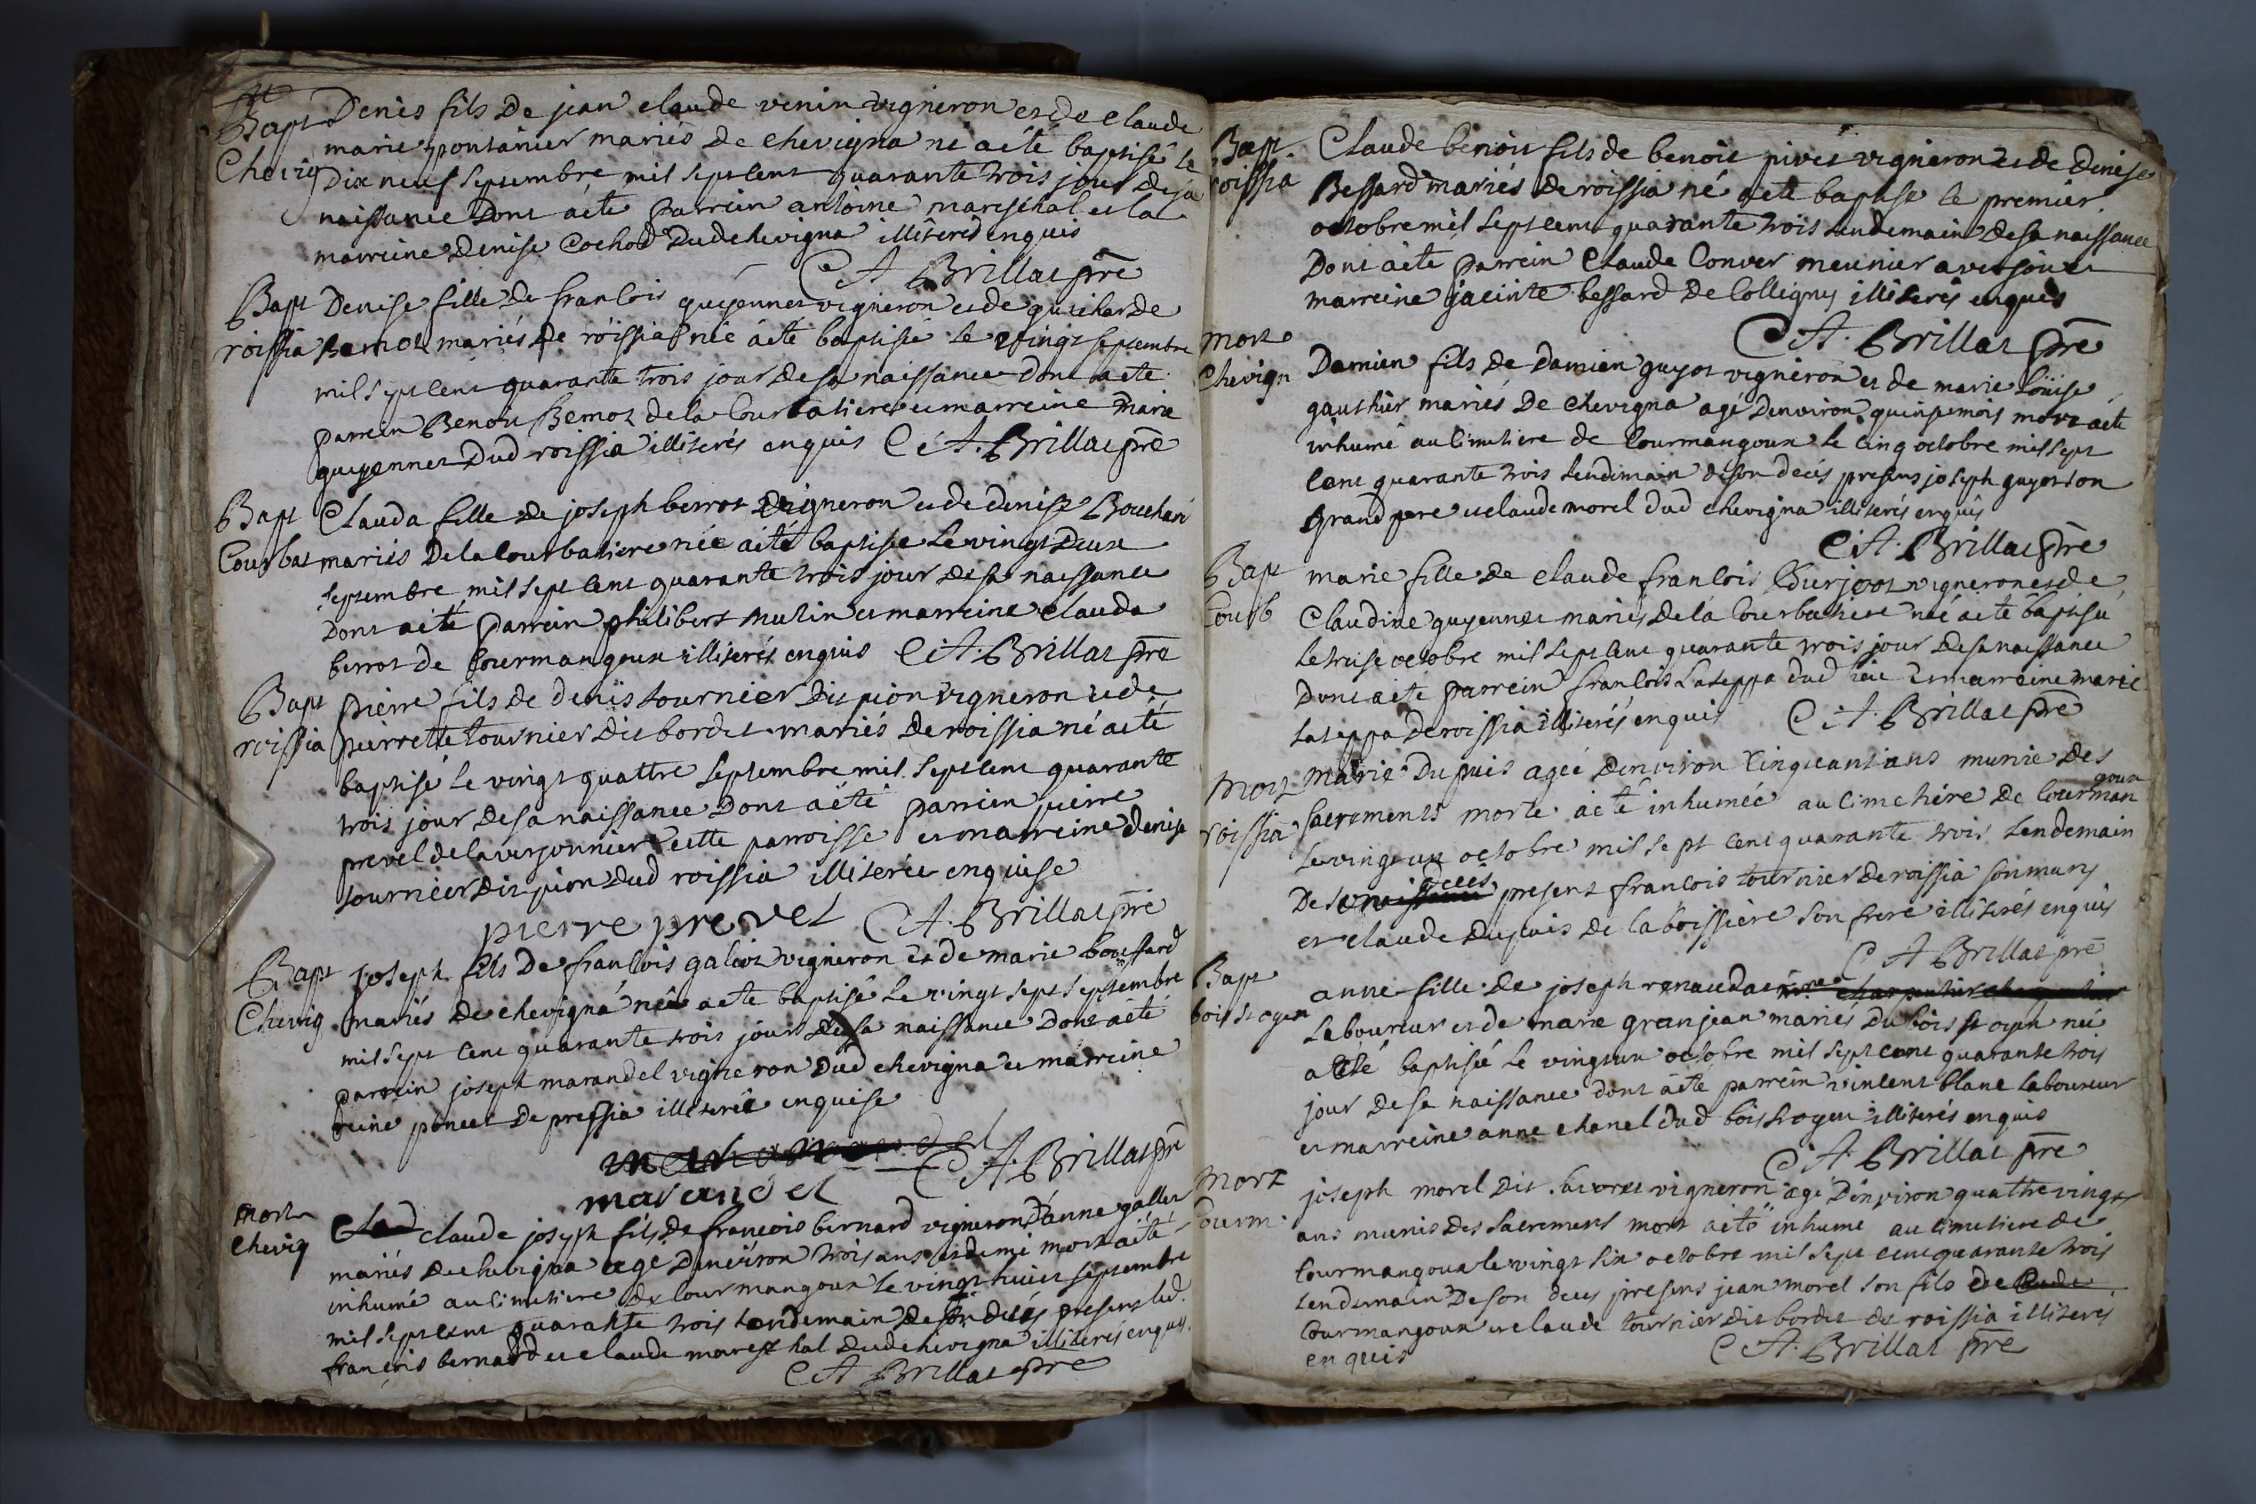 Bapt
Chevig
Denis fils de jean claude venin vigneron et de claude
marie pontanier mariés de chevigna né a été baptisé le
Dix neuf septembre mil sept cent quarante trois jour de sa
naissance dont a été parrein antoine mareschal et la
marreine denise Cochod dud chevigna illiterés enquis
C A Brillat pre
Bapt
roissia
Denise fille de francois guyennet vigneron et de guicharde
Bernoz mariés de roissia née a été baptisée le vingt septembre
mil sept cent quarante trois jour de sa naissance dont a été
parrein Benoit Bernoz de la Courbatiere et marreine marie
guyennet dud roissia illiterés enquis C A. Brillat pre
Bapt
Courbat
Clauda fille de joseph berrot vigneron et de denise Bouchard
mariés de la courbatiere née a été baptisée le vingt deux
septembre mil sept cent quarante trois jour de sa naissance
dont a été parrein philibert mulin et marreine clauda
berrot de Courmangoux illiterés enquis C A. Brillat pre
Bapt
roissia
pierre fils de denis tournier dit pion vigneron et de
pierrette tournier dit bordet mariés de roissia né a été
baptisé le vingt quattre septembre mil sept cent quarante
trois jour de sa naissance dont a été parrien pierre
prevel de la verjonnier cette parroisse et marreine denise
tournier dit pion dud roissia illiterée enquise
pierre prevel C A. Brillat pre
Bapt
Chevig
joseph fils de francois galioz vigneron et de marie bouffard
mariés de chevigna né a été baptisé le vingt sept septembre
mil sept cent quarante trois jour de sa naissance dont a été
parrein joseph marandel vigneron dud chevigna et marreine
reine poncet de pressia illiterée enquise
C A. Brillat pre
marandel
mort
chevig
claude joseph fils de francois bernard vigneron d'anne gallet
mariés de chevigna agé d'environ trois ans et demi mort a été
inhumé au cimetiere de courmangoux le vingt huict septembre
mil sept cent quarante trois lendemain de son deces presens led.
francois bernard et claude mareschal dud chevigna illiterés enquis.
C A Brillat pre
Bapt
roissia
Claude benoit fils de benoit pivet vigneron et de denise
Bessard mariés de roissia né a été baptisé le premier
octobre mil sept cent quarante trois lendemain de sa naissance
dont a été parrein Claude Conver meunier a verjon et
marreine jacinte bessard de Colligny illiterés enquis
C A. Brillat pre
mort
chevign
Damien fils de damien guyot vigneron et de marie louise
gauthier mariés de chevigna agé d'environ quinze mois mort a été
inhumé au cimetiere de Courmangoux le cinq octobre mil sept
cent quarante trois lendemain de son deces presens joseph guyot son
grand pere et claude morel dud chevigna illiterés enquis
C A. Brillat pre
Bapt
Courb
marie fille de claude francois Burjoot vigneron et de
Claudine guyennet mariés de la Courbatiere née a été baptisée
le treise octobre mil sept cent quarante trois jour de sa naissance
dont a été parrein francois Lateppa dud lieu et marreine marie
Lateppa de roissia illiterés enquis C A. Brillat pre
mort
roissia
marie Dupuis agée d'environ cinqcant ans munie des
sacrements morte a été inhumée au cimetiere de Courman
goux
le vingt un octobre mil sept cent quarante trois lendemain
deces
de son present francois tournier de roissia son mary
et claude dupuis de la boissiere son frere illiterés enquis
C A Brillat pre
Bapt
bois st oyen
anne fille de joseph renaud
Laboureur et de marie granjean mariés du bois st oyen née
a été baptisée le vingt un octobre mil sept cent quarante trois
jour de sa naissance dont a été parrein vincent blanc laboureur
et marreine anne chanel dud bois st oyen illiterés enquis
C A. Brillat pre
mort
Courm.
joseph morel dit vigneron agé d'environ quattre vingt
ans munis des sacremens mort a été inhumé au cimetiere de
courmangoux le vingt six octobre mil sept cent quarante trois
lendemain de son deces presens jean morel son fils de
Courmangoux et claude tournier dit bordet de roissia illiterés
enquis C A. Brillat pre